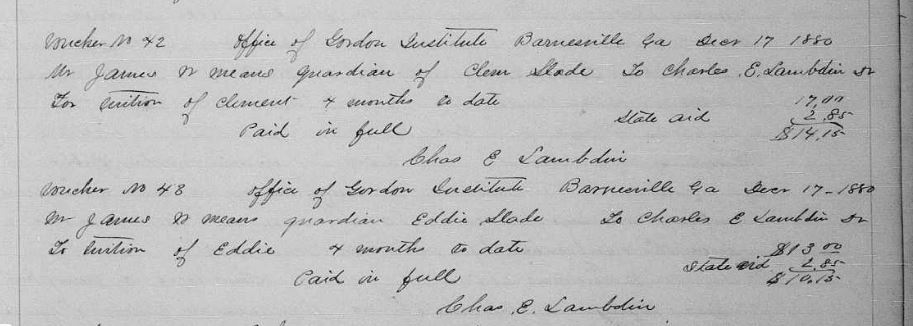 Voucher No 42 Office of Gordon Institute Barnesville Ga Decr 17 1880
Mr James W Means guardian of Clem Slade To Charles E. Lambdin Dr
For tuition of Clement 4 months to date 17.00
State aid 2.85
Paid in full $14.15
Chas E Lambdin
Voucher No 43 Office of Gordon Institute Barnesville Ga Decr 17-1880
Mr James W Means guardian Eddie Slade To Charles E Lambdin Dr
To tuition of Eddie 4 months to date $13.00
State aid 2.85
Paid in full $10.15
Chas. E. Lambdin